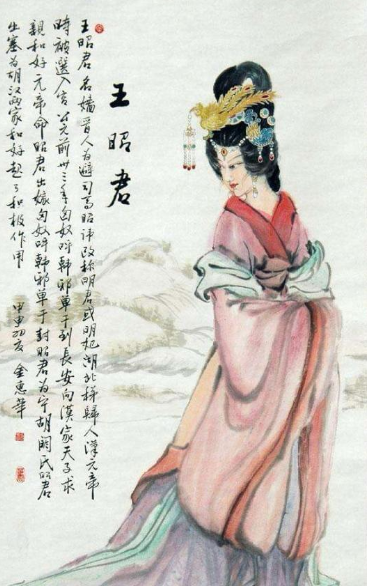 王昭君
王昭君名嫱晋人为避司马昭讳改称明君或明妃湖北秭归人汉元帝
时被选入宫公元前卅三年匈奴呼韩邪单于到长安向汉家天子求
亲和好元帝命昭君出嫁匈奴呼韩邪单于封昭君为宁胡阏氏昭君
出塞为胡汉两家和好起了积极作用
甲申初夏 金惠华